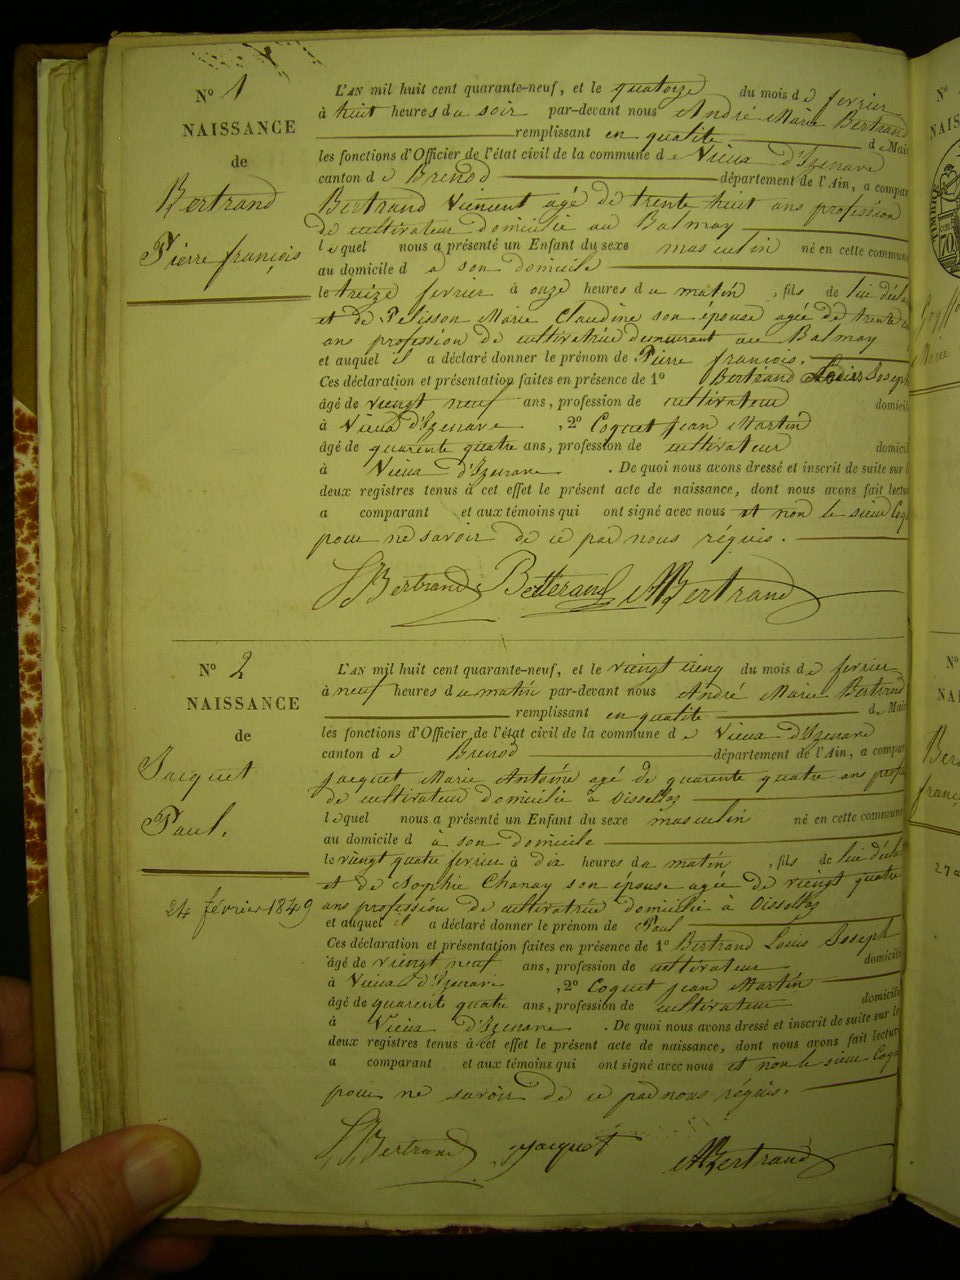 N° 1
NAISSANCE
de
Bertrand
Pierre françois
L'AN mil huit cent quarante-neuf, et le quatorze du mois d e fevrier
à huit heures du soir par-devant nous André Marie Bertrand
remplissant en qualité de Mai
les fonctions d'Officier de l'état civil de la commune d e Vieux d'Izenave
canton d e Brenod département de l'Ain, a compar
Bertrand Vincent agé de trente huit ans profession
de cultivateur domicilié au Balmay
lequel nous a présenté un Enfant du sexe masculin né en cette commune
au domicile d à son domicile
le treize fevrier à onze heures du matin , fils de lui décla
et de Pelisson Marie Claudine son épouse agée de trente
ans profession de cultivatrice demeurant au Balmay
et auquel il a déclaré donner le prénom de Pierre francois.
Ces déclaration et présentation faites en présence de 1° Bertrand Louis Joseph
âgé de viengt neuf ans, profession de cultivateur domicil
à Vieux d'Izenave , 2° Coquet jean Martin
âgé de quarente quatre ans, profession de cultivateur domicil
à Vieux d'Izenave . De quoi nous avons dressé et inscrit de suite sur l
deux registres tenus à cet effet le présent acte de naissance, dont nous avons fait lectur
a comparant et aux témoins qui ont signé avec nous et non le sieur Coq
pour ne savoir de ce par nous réquis.
Bertrand Bertrand AMBertrand
N° 2
NAISSANCE
de
Jacquet
Paul.
24 février 1849
L'AN mil huit cent quarante-neuf, et le viengt cinq du mois d e fevrier
à neuf heures du matin par-devant nous André Marie Bertrand
remplissant en qualité de Mair
les fonctions d'Officier de l'état civil de la commune d e Vieux d'Izenave
canton d e Brenod département de l'Ain, a compar
jacquet Marie Antoine agé de quarente quatre ans profe
de cultivateur domicilié à Oissellaz
lequel nous a présenté un Enfant du sexe masculin né en cette commune
au domicile d à son domicile
le viengt quatre fevrier à dix heures du matin , fils de lui décla
et de Sophie Chanay son épouse agée de viengt quatre
ans profession de cultivatrice domicilié à Oissellaz
et auquel il a déclaré donner le prénom de Paul
Ces déclaration et présentation faites en présence de 1° Bertrand Louis Joseph
âgé de viengt neuf ans, profession de cultivateur domicili
à Vieux d'Izenave , 2° Coquet jean Martin
âgé de quarente quatre ans, profession de cultivateur domicilié
à Vieux d'Izenave . De quoi nous avons dressé et inscrit de suite sur le
deux registres tenus à cet effet le présent acte de naissance, dont nous avons fait lectur
a comparant et aux témoins qui ont signé avec nous et non le sieur Coqu
pour ne savoir de ce par nous réquis.
Bertrand jacquet AMBertrand